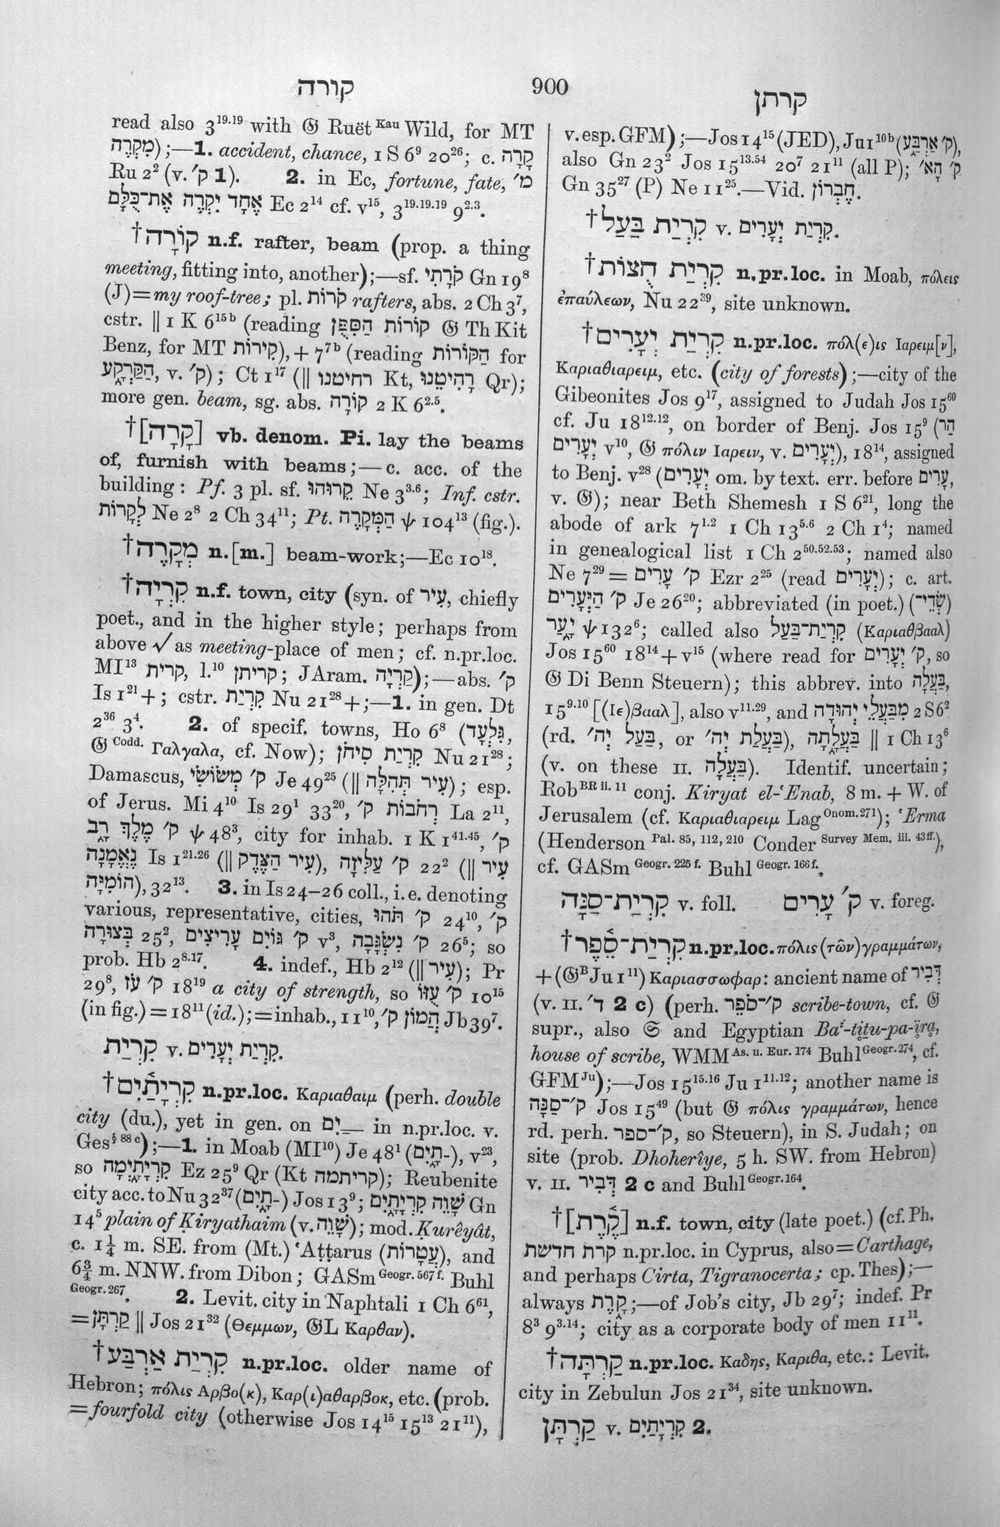 קורה
900
קרתן
read also 3¹⁹·¹⁹ with 𝔊 Ruët ᴷᵃᵘ Wild, for MT
מִקְרֶה);—1. accident, chance, 1 S 6⁹ 20²⁶; c. קָרָה
Ru 2² (v. ק׳ 1). 2. in Ec, fortune, fate, מ׳
אֶחָד יִקְרֶה אֶת־כֻּלָּם Ec 2¹⁴ cf. v¹⁵, 3¹⁹·¹⁹·¹⁹ 9²·³.
†קוֹרָה n.f. rafter, beam (prop. a thing
meeting, fitting into, another);—sf. קֹרָתִי Gn 19⁸
(J)=my roof-tree; pl. קֹרוֹת rafters, abs. 2 Ch 3⁷,
cstr. || 1 K 6¹⁵ᵇ (reading קוֹרוֹת הַסִּפֻּן 𝔊 Th Kit
Benz, for MT קִירוֹת), + 7⁷ᵇ (reading הַקּוֹרוֹת for
הַקַּרְקַע, v. ק׳); Ct 1¹⁷ (|| רחיטנו Kt, רָהִיטֵנוּ Qr);
more gen. beam, sg. abs. קוֹרָה 2 K 6²·⁵.
†[קָרָה] vb. denom. Pi. lay the beams
of, furnish with beams;—c. acc. of the
building: Pf. 3 pl. sf. קֵרוּהוּ Ne 3³·⁶; Inf. cstr.
לְקָרוֹת Ne 2⁸ 2 Ch 34¹¹; Pt. הַמְקָרֶה ψ 104¹³ (fig.).
†מְקָרֶה n.[m.] beam-work;—Ec 10¹⁸.
†קִרְיָה n.f. town, city (syn. of עִיר, chiefly
poet., and in the higher style; perhaps from
above √ as meeting-place of men; cf. n.pr.loc.
MI¹³ קרית, l.¹⁰ קריתן; J Aram. קִרְיָה);—abs. ק׳
Is 1²¹ +; cstr. קִרְיַת Nu 21²⁸ +;—1. in gen. Dt
2³⁶ 3⁴. 2. of specif. towns, Ho 6⁸ (גִּלְעָד,
𝔊 Codd. Γαλγαλα, cf. Now); קִרְיַת סִיחֹן Nu 21²⁸;
Damascus, ק׳ מְשׂוֹשִׂי Je 49²⁵ (|| עִיר תְּהִלָּה); esp.
of Jerus. Mi 4¹⁰ Is 29¹ 33²⁰, ק׳ רְחֹבוֹת La 2¹¹,
ק׳ מֶלֶךְ רָב ψ 48³, city for inhab. 1 K 1⁴¹·⁴⁵, ק׳
נֶאֱמָנָה Is 1²¹·²⁶ (|| עִיר הַצֶּדֶק), ק׳ עַלִּיזָה 22² (|| עִיר
הוֹמִיָּה), 32¹³. 3. in Is 24–26 coll., i.e. denoting
various, representative, cities, ק׳ תֹּהוּ 24¹⁰, ק׳
בְּצוּרָה 25², ק׳ גּוֹיִם עָרִיצִים v³, ק׳ נִשְׂגָּבָה 26⁵; so
prob. Hb 2⁸·¹⁷. 4. indef., Hb 2¹² (|| עִיר); Pr
29⁸, ק׳ עֹז 18¹⁹ a city of strength, so ק׳ עֻזּוֹ 10¹⁵
(in fig.) = 18¹¹ (id.); = inhab., 11¹⁰, הֲמוֹן ק׳ Jb 39⁷.
קִרְיַת v. קִרְיַת יְעָרִים.
†קִרְיָתַיִם n.pr.loc. Καριαθαιμ (perh. double
city (du.), yet in gen. on ־ַיִם in n.pr.loc. v.
Ges§ ⁸⁸ᶜ);—1. in Moab (MI¹⁰) Je 48¹ (־תָיִם), v²³,
so קִרְיָתָיְמָה Ez 25⁹ Qr (Kt קריתמה); Reubenite
city acc. to Nu 32³⁷ (־תָיִם) Jos 13⁹; שָׁוֵה קִרְיָתָיִם Gn
14⁵ plain of Ḳiryathaim (v. שָׁוֵה); mod. Ḳurêyât,
c. 1¼ m. SE. from (Mt.) ʿAṭṭarus (עֲטָרוֹת), and
6¾ m. NNW. from Dibon; GASm Geogr. 567 f. Buhl
Geogr. 267. 2. Levit. city in Naphtali 1 Ch 6⁶¹,
=קַרְתָּן || Jos 21³² (Θεμμων, 𝔊L Καρθαν).
†קִרְיַת אַרְבַּע n.pr.loc. older name of
Hebron; πόλις Αρβο(κ), Καρ(ι)αθαρβοκ, etc. (prob.
=fourfold city (otherwise Jos 14¹⁵ 15¹³ 21¹¹),
v. esp. GFM);—Jos 14¹⁵ (JED), Ju 1¹⁰ᵇ (ק׳ אַרְבַּע),
also Gn 23² Jos 15¹³·⁵⁴ 20⁷ 21¹¹ (all P); ק׳ הָא׳
Gn 35²⁷ (P) Ne 11²⁵.—Vid. חֶבְרוֹן.
†קִרְיַת בַּעַל v. קִרְיַת יְעָרִים.
†קִרְיַת חֻצוֹת n.pr.loc. in Moab, πόλεις
ἐπαύλεων, Nu 22³⁹, site unknown.
†קִרְיַת יְעָרִים n.pr.loc. πόλ(ε)ις Ιαρειμ[ν],
Καριαθιαρειμ, etc. (city of forests);—city of the
Gibeonites Jos 9¹⁷, assigned to Judah Jos 15⁶⁰
cf. Ju 18¹²·¹², on border of Benj. Jos 15⁹ (הַר
יְעָרִים v¹⁰, 𝔊 πόλιν Ιαρειν, v. יְעָרִים), 18¹⁴, assigned
to Benj. v²⁸ (יְעָרִים om. by text. err. before עָרִים,
v. 𝔊); near Beth Shemesh 1 S 6²¹, long the
abode of ark 7¹·² 1 Ch 13⁵·⁶ 2 Ch 1⁴; named
in genealogical list 1 Ch 2⁵⁰·⁵²·⁵³; named also
Ne 7²⁹ = ק׳ עָרִים Ezr 2²⁵ (read יְעָרִים); c. art.
ק׳ הַיְּעָרִים Je 26²⁰; abbreviated (in poet.) (שְׂדֵי־)
יָעַר ψ 132⁶; called also קִרְיַת־בַּעַל (Καριαθβααλ)
Jos 15⁶⁰ 18¹⁴ + v¹⁵ (where read for ק׳ יְעָרִים, so
𝔊 Di Benn Steuern); this abbrev. into בַּעֲלָה,
15⁹·¹⁰ [(Ιε)βααλ], also v¹¹·²⁹, and מִבַּעֲלֵי יְהוּדָה 2 S 6²
(rd. בַּעַל יְה׳, or בַּעֲלַת יְה׳), בַּעֲלָתָה || 1 Ch 13⁶
(v. on these II. בַּעֲלָה). Identif. uncertain;
Rob BR ii. 11 conj. Kiryat el-ʿEnab, 8 m. + W. of
Jerusalem (cf. Καριαθιαρειμ Lag Onom. 271); ʿErma
(Henderson Pal. 85, 112, 210 Conder Survey Mem. iii. 43 ff.),
cf. GASm Geogr. 225 f. Buhl Geogr. 166 f.
קִרְיַת־סַנָּה v. foll. ק׳ עָרִים v. foreg.
†קִרְיַת־סֵפֶר n.pr.loc. πόλις (τῶν) γραμμάτων,
+ (𝔊ᴮ Ju 1¹¹) Καριασσωφαρ: ancient name of דְּבִיר
(v. II. ד׳ 2 c) (perh. ק׳־סֹפֵר scribe-town, cf. 𝔊
supr., also 𝔖 and Egyptian Baʾ-ti̯tu-pa-i̯ra,
house of scribe, WMM As. u. Eur. 174 Buhl Geogr. 274, cf.
GFM Ju);—Jos 15¹⁵·¹⁶ Ju 1¹¹·¹²; another name is
ק׳־סַנָּה Jos 15⁴⁹ (but 𝔊 πόλις γραμμάτων, hence
rd. perh. ק׳־ספר, so Steuern), in S. Judah; on
site (prob. Dhoherîye, 5 h. SW. from Hebron)
v. II. דְּבִיר 2 c and Buhl Geogr. 164.
†[קֶרֶת] n.f. town, city (late poet.) (cf. Ph.
קרת חדשת n.pr.loc. in Cyprus, also = Carthage,
and perhaps Cirta, Tigranocerta; cp. Thes);—
always קָרֶת;—of Job's city, Jb 29⁷; indef. Pr
8³ 9³·¹⁴; city as a corporate body of men 11¹¹.
†קַרְתָּה n.pr.loc. Καδης, Καριθα, etc.: Levit.
city in Zebulun Jos 21³⁴, site unknown.
קַרְתָּן v. קִרְיָתַיִם 2.